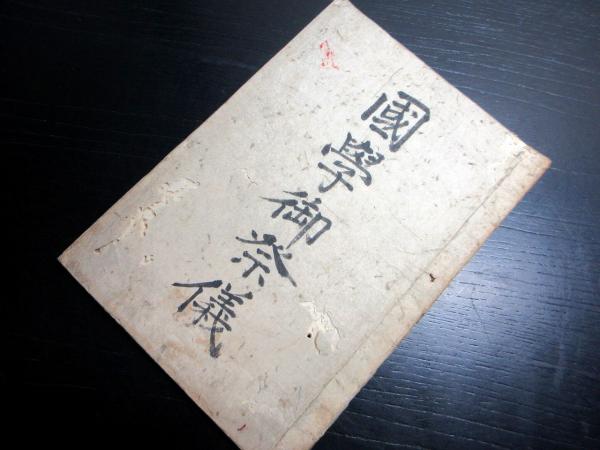 國學御祭儀